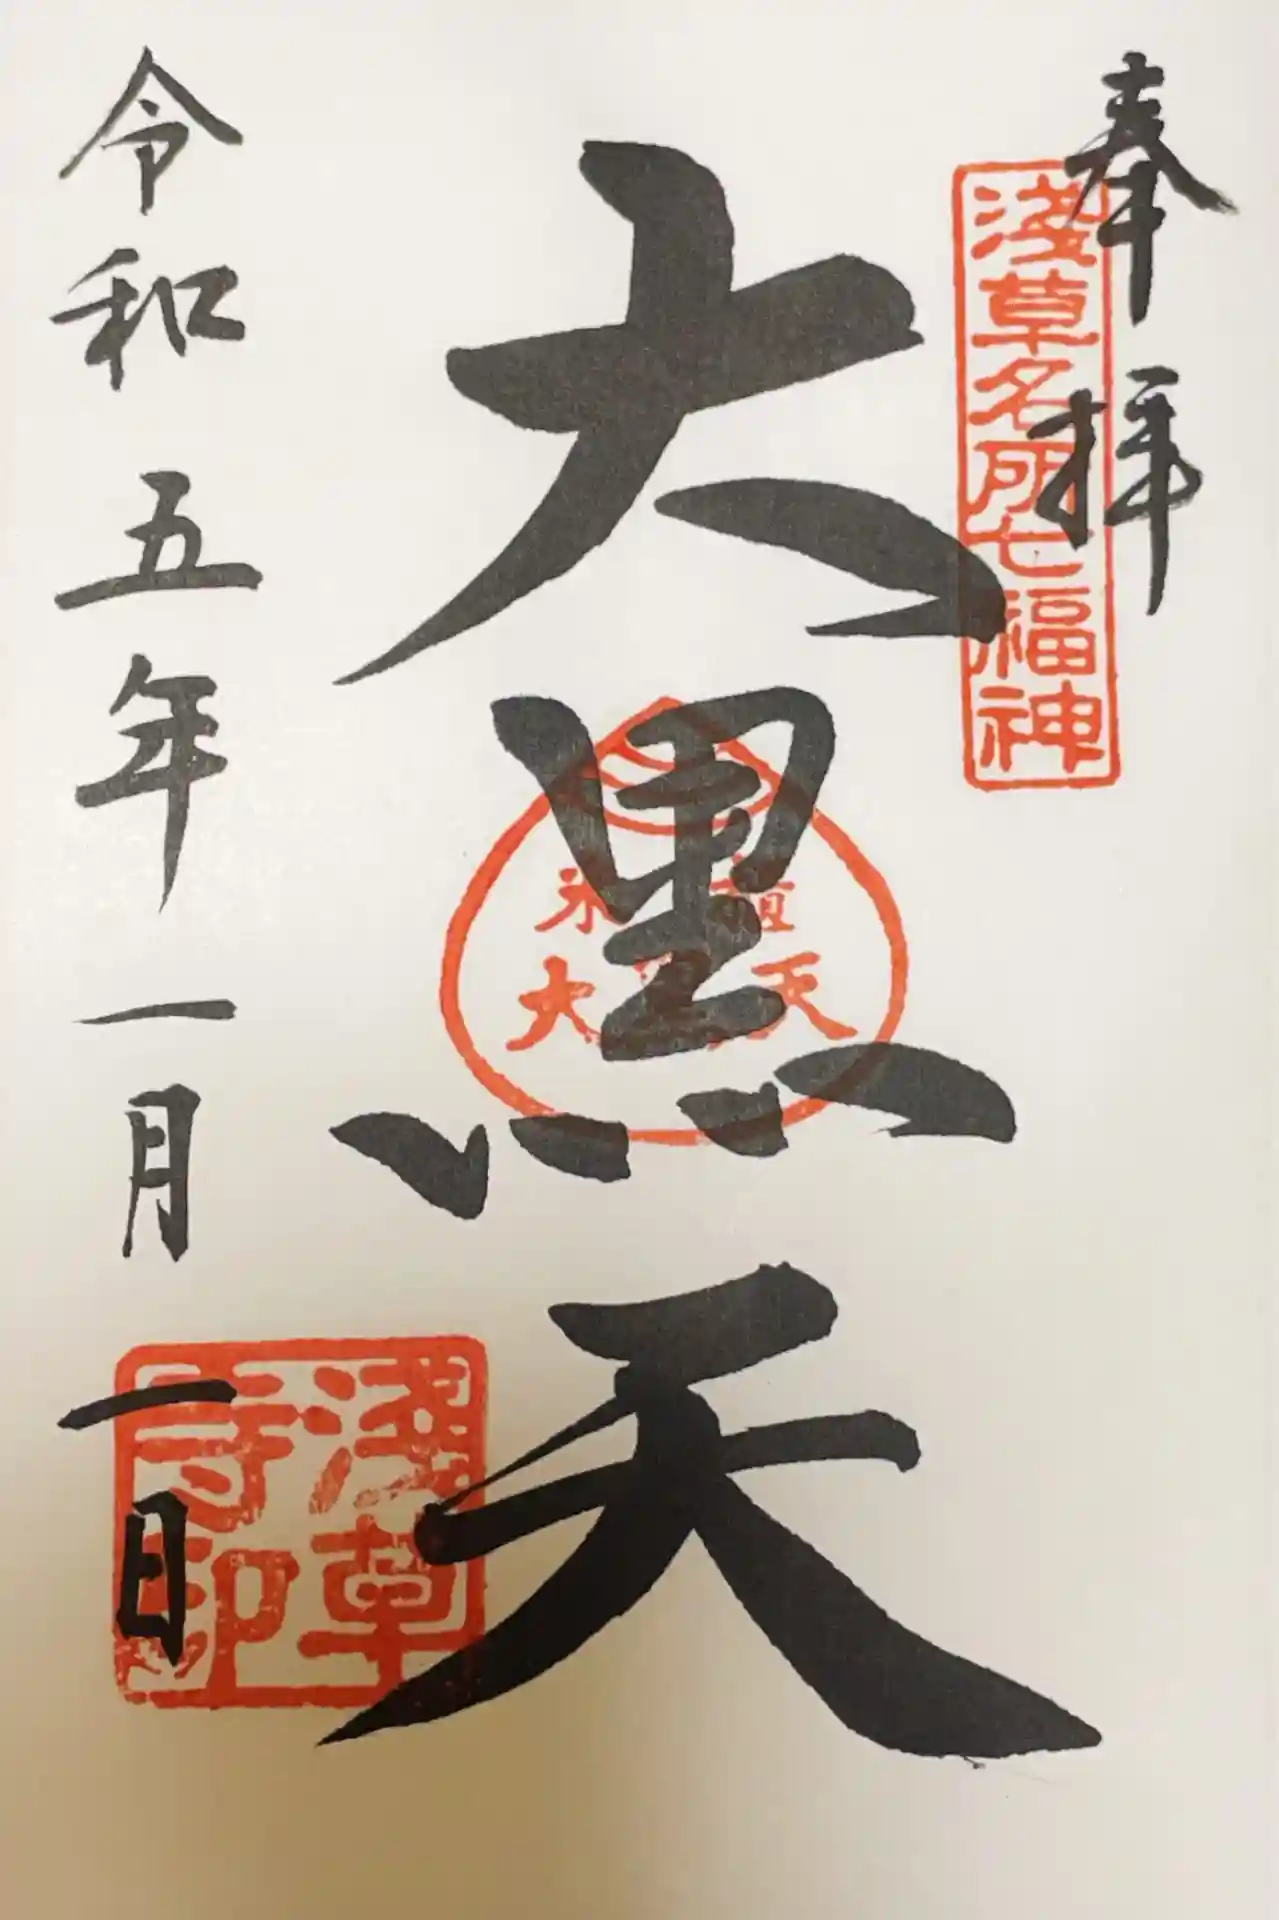 奉拝
淺草名所七福神
大黒天
大 天
令和五年一月一日
淺草
寺印